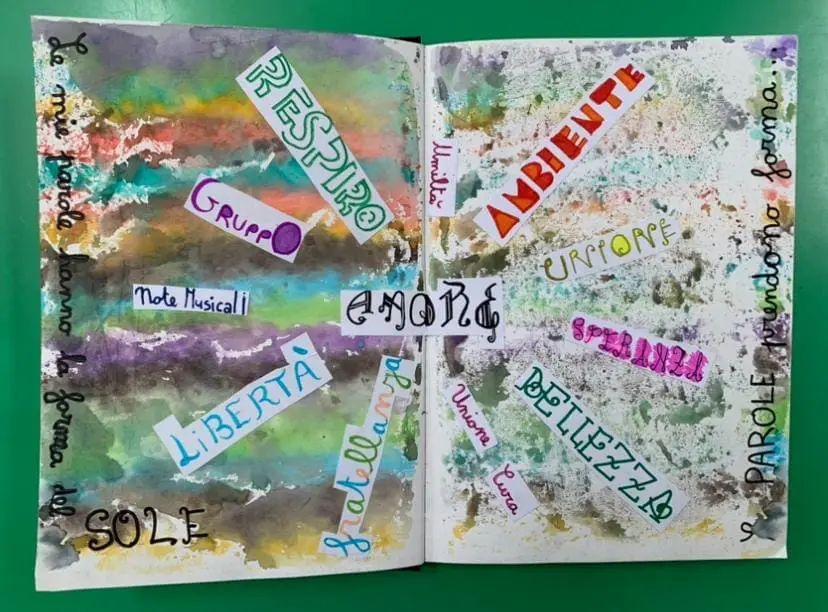 Le mie parole hanno la forma del
SOLE
RESPIRO
GRUPPO
Note Musicali
LIBERTÀ
fratellanza
AMORE
Umiltà
AMBIENTE
UNIONE
SPERANZA
BELLEZZA
Unione
Cura
e PAROLE prendono forma...